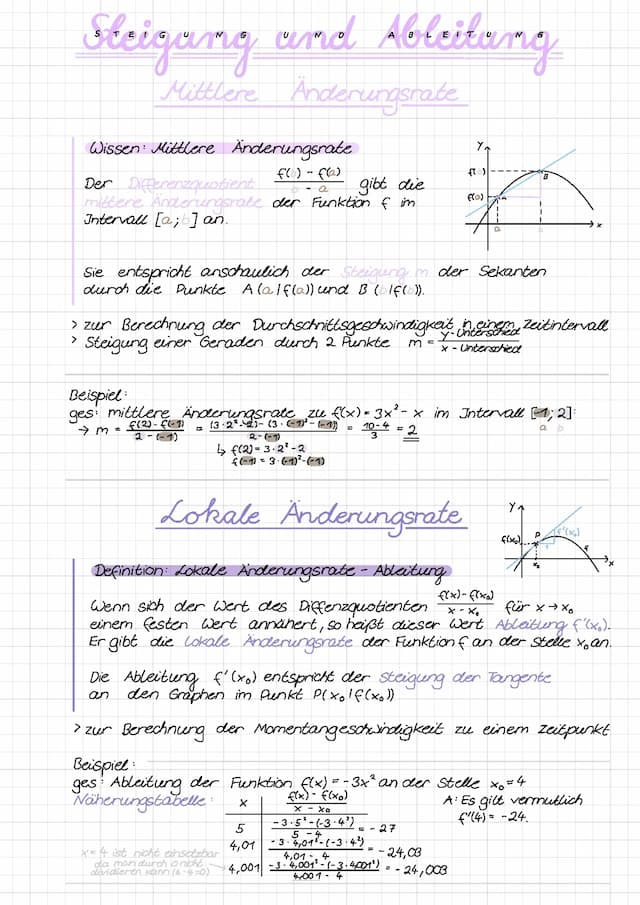 Steigung und Ableitung
STEIGUNG UND ABLEITUNG
Mittlere Änderungsrate
Wissen: Mittlere Änderungsrate
Der Differenzquotient f(b) - f(a) / b - a gibt die
mittlere Änderungsrate der Funktion f im
Intervall [a; b] an.
y
f(b)
B
f(a)
A
a
b
x
Sie entspricht anschaulich der Steigung m der Sekanten
durch die Punkte A (a|f(a)) und B (b|f(b)).
> zur Berechnung der Durchschnittsgeschwindigkeit in einem Zeitintervall
> Steigung einer Geraden durch 2 Punkte m = y-Unterschied / x-Unterschied
Beispiel:
ges: mittlere Änderungsrate zu f(x) = 3x² - x im Intervall [-1; 2]:
a b
→ m = f(2) - f(-1) / 2 - (-1) = (3·2²-2) - (3·(-1)²-(-1)) / 2-(-1) = 10-4 / 3 = 2
↳ f(2) = 3·2²-2
f(-1) = 3·(-1)²-(-1)
Lokale Änderungsrate
y
f(x₀)
P
f'(x₀)
1
f
x₀
x
Definition: Lokale Änderungsrate - Ableitung
Wenn sich der Wert des Diffenzquotienten f(x) - f(x₀) / x - x₀ für x → x₀
einem festen Wert annähert, so heißt dieser Wert Ableitung f'(x₀).
Er gibt die lokale Änderungsrate der Funktion f an der Stelle x₀ an.
Die Ableitung f'(x₀) entspricht der Steigung der Tangente
an den Graphen im Punkt P(x₀|f(x₀))
> zur Berechnung der Momentangeschwindigkeit zu einem Zeitpunkt
Beispiel:
ges: Ableitung der Funktion f(x) = -3x² an der Stelle x₀ = 4
Näherungstabelle:
x | f(x) - f(x₀) / x - x₀
5 | -3·5²-(-3·4²) / 5-4 = -27
4,01 | -3·4,01²-(-3·4²) / 4,01-4 = -24,03
4,001 | -3·4,001²-(-3·4001²) / 4,001-4 = -24,003
A: Es gilt vermutlich
f'(4) = -24.
x = 4 ist nicht einsetzbar
da man durch 0 nicht
dividieren kann (4-4=0)